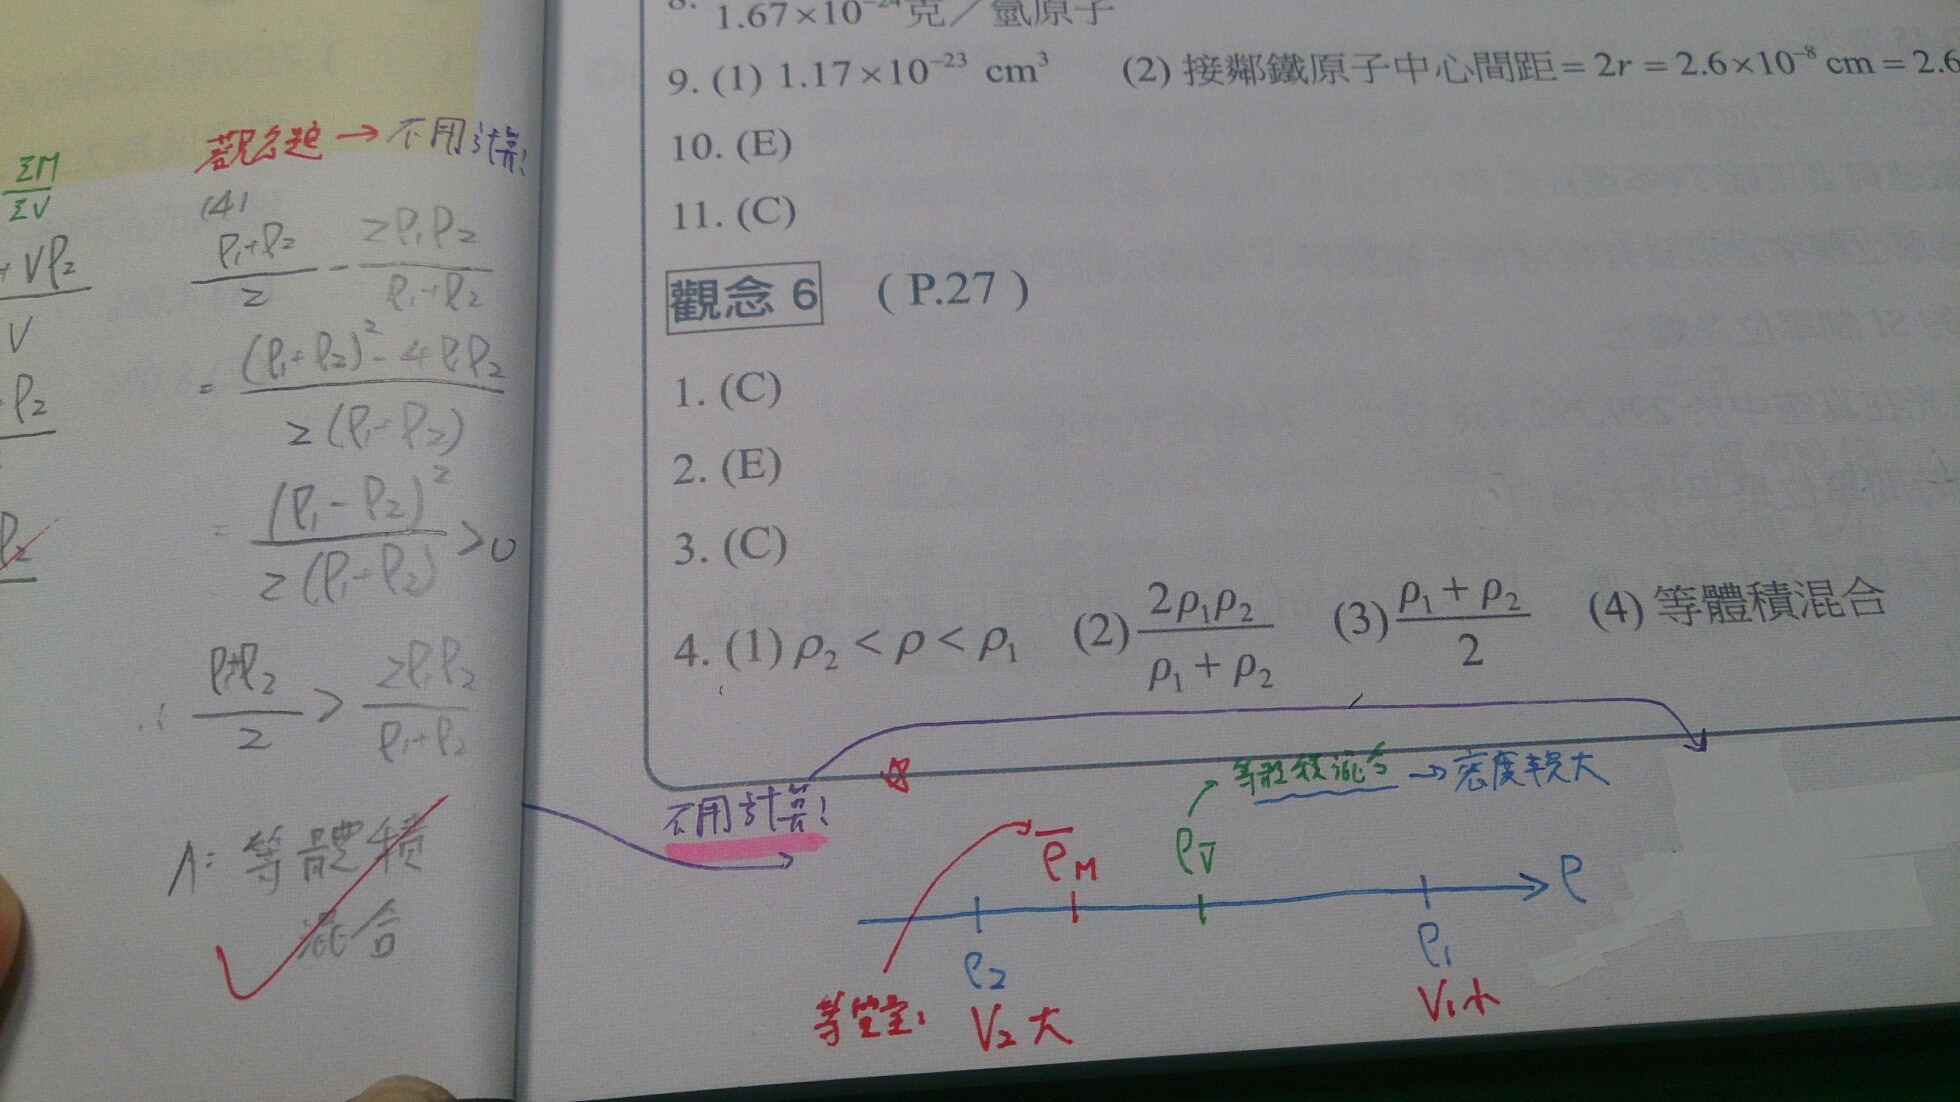 ΣM
ΣV
+ Vρ₂
V
ρ₂
ρ₂
觀念題 → 不用計算!
(4)
(ρ₁+ρ₂)/2 - 2ρ₁ρ₂/(ρ₁+ρ₂)
= ((ρ₁+ρ₂)² - 4ρ₁ρ₂)/(2(ρ₁+ρ₂))
= (ρ₁-ρ₂)²/(2(ρ₁+ρ₂)) > 0
∴ (ρ₁+ρ₂)/2 > 2ρ₁ρ₂/(ρ₁+ρ₂)
A: 等體積
混合
8. 1.67×10⁻²⁴克／氫原子
9. (1) 1.17×10⁻²³ cm³ (2) 接鄰鐵原子中心間距 = 2r = 2.6×10⁻⁸ cm = 2.6
10. (E)
11. (C)
觀念 6 ( P.27 )
1. (C)
2. (E)
3. (C)
4. (1) ρ₂ < ρ < ρ₁ (2) 2ρ₁ρ₂/(ρ₁ + ρ₂) (3) (ρ₁ + ρ₂)/2 (4) 等體積混合
不用計算!
等體積混合 → 密度較大
ρ̅M ρV̅ ρ
ρ₂ ρ₁
等質量: V₂大 V₁小